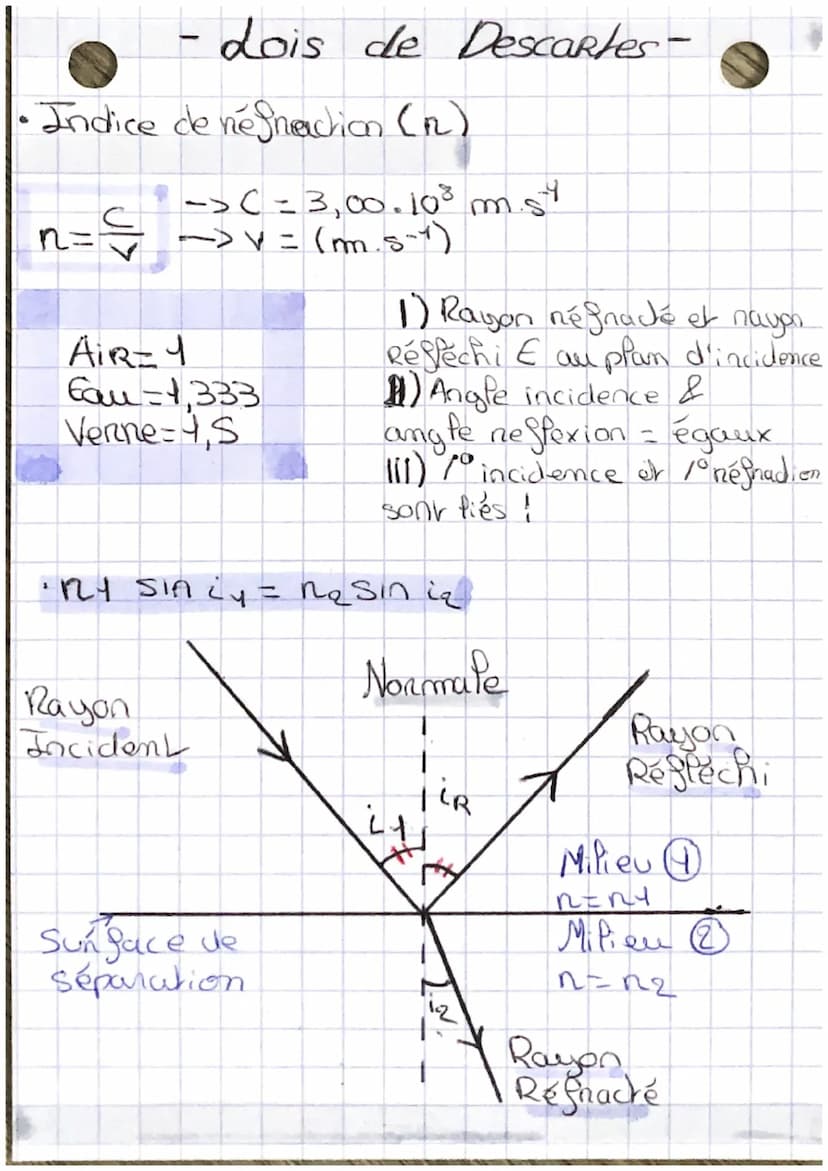 - Lois de Descartes -
• Indice de réfraction (n)
n = c/v
-> C = 3,00.10⁸ m.s⁻¹
-> v = (m.s⁻¹)
Air = 1
Eau = 1,333
Verre = 1,5
I) Rayon réfracté et rayon
Réfléchi ∈ au plan d'incidence
II) Angle incidence &
angle reflexion = égaux
III) l'° incidence et l'° réfraction
sont liés !
• n1 sin i1 = n2 sin i2
Normale
Rayon
Incident
Rayon
Réfléchi
i1
iR
Milieu ①
n = n1
Surface de
séparation
Milieu ②
n = n2
i2
Rayon
Réfracté